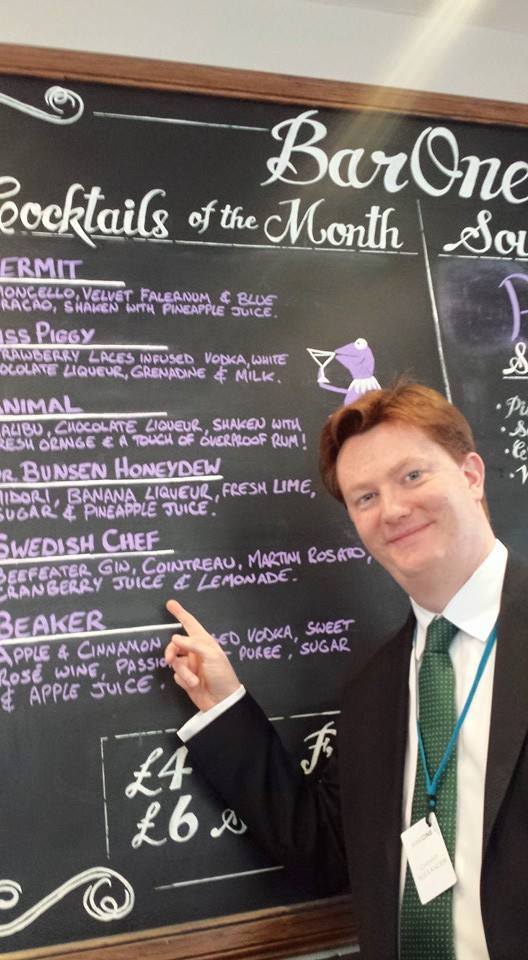 BarOne
Cocktails of the Month
Sou
ERMIT
MONCELLO, VELVET FALERNUM & BLUE
RACAO, SHAKEN WITH PINEAPPLE JUICE.
ISS PIGGY
TRAWBERRY LACES INFUSED VODKA, WHITE
OCOLATE LIQUEUR, GRENADINE & MILK.
ANIMAL
ALIBU, CHOCOLATE LIQUEUR, SHAKEN WITH
RESH ORANGE & A TOUCH OF OVERPROOF RUM!
DR BUNSEN HONEYDEW
MIDORI, BANANA LIQUEUR, FRESH LIME,
SUGAR & PINEAPPLE JUICE.
SWEDISH CHEF
BEEFEATER GIN, COINTREAU, MARTINI ROSATO,
CRANBERRY JUICE & LEMONADE.
BEAKER
APPLE & CINNAMON SED VODKA, SWEET
ROSÉ WINE, PASSIO PUREE, SUGAR
& APPLE JUICE.
£4
£6
ALEXANDER